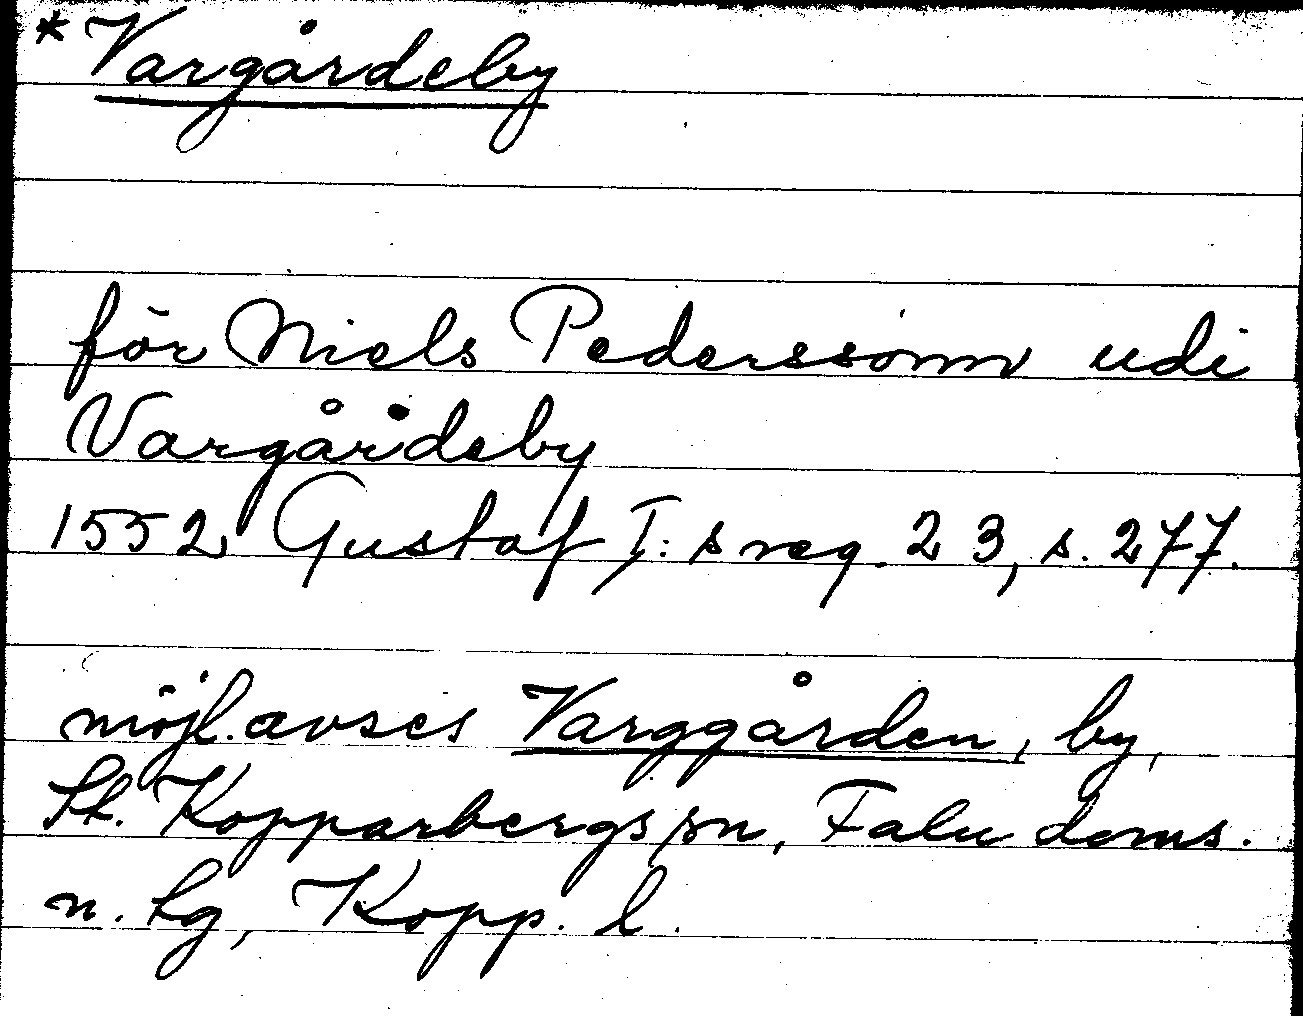 *Vargårdeby
för Niels Pederssonn udi
Vargårdeby
1552 Gustaf I:s reg. 23, s. 277.
möjl. avses Varggården, by,
St. Kopparbergs sn, Falu doms.
n. tg, Kopp. l.